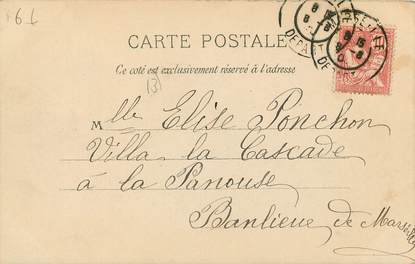 CARTE POSTALE
Ce côté est exclusivement réservé à l'adresse
Mlle Elise Ponchon
Villa la Cascade
à la Panouse
Banlieue de Marseille